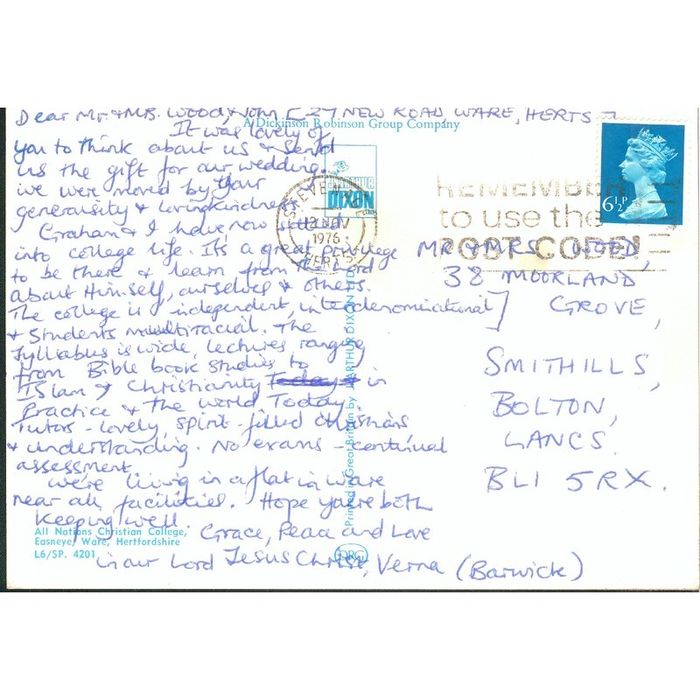 Dear Mr. & Mrs. Wood, & John [27 NEW ROAD WARE, HERTS]
A Dickinson Robinson Group Company
It was lovely of
you to think about us & send
us the gift for our wedding.
we were moved by your
generousity & lovingkindness
Graham & I have now settled
into college life. It's a great privilege
to be there & learn from the Lord
about Himself, ourselves & others.
The college is independent, interdenominational]
& students multiracial. The
syllabus is wide, lectures ranging
from Bible book studies to
Islam & Christianity Today & in
Practice & the World Today.
Tutors - lovely, spirit-filled Christians
& understanding. No exams - continual
assessment
We're living in a flat in Ware
near all facilities. Hope you're both
keeping well.
Grace, Peace and Love
in our Lord Jesus Christ, Verna (Barwick)
All Nations Christian College,
Easneye, Ware, Hertfordshire
L6/SP. 4201
ARTHUR
DIXON
Printed in Great Britain by J. ARTHUR DIXON
DRG
STEVENAGE
12 NOV
1976
HERTS
REMEMBER
to use the
POST CODE!
6½P
MR & MRS WOOD,
38 MOORLAND
GROVE,
SMITHILLS,
BOLTON,
LANCS.
BL1 5RX.